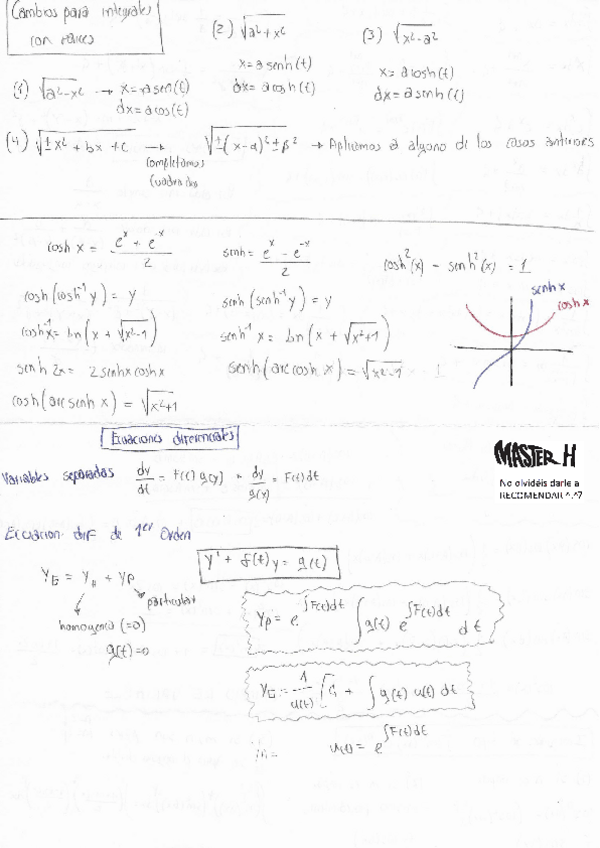 Cambios para integrales
con raíces
(1) √(a²-x²) → x = a sen(t)
dx = a cos(t)
(2) √(a²+x²)
x = a senh(t)
dx = a cosh(t)
(3) √(x²-a²)
x = a cosh(t)
dx = a senh(t)
(4) √(±x² + bx + c) → √(±(x-α)² ± β²) → Aplicamos a alguno de los casos anteriores
completamos
cuadrados
cosh x = (e^x + e^-x)/2
senh = (e^x - e^-x)/2
cosh²(x) - senh²(x) = 1
cosh(cosh⁻¹ y) = y
senh(senh⁻¹ y) = y
senh x
cosh x
cosh⁻¹x = ln(x + √(x²-1))
senh⁻¹ x = ln(x + √(x²+1))
senh 2x = 2 senhx coshx
senh(arc cosh x) = √(x²-1)
cosh(arc senh x) = √(x²+1)
Ecuaciones diferenciales
MASTER H
No olvidéis darle a
RECOMENDAR ^.^7
Variables separadas dy/dt = f(t) g(y) = dy/g(y) = f(t) dt
Ecuacion dif de 1er Orden
y' + f(t) y = g(t)
y_G = y_H + y_P
particular
homogenea (=0)
g(t)=0
y_P = e^∫f(t)dt ∫ g(t) e^∫f(t)dt dt
y_G = 1/u(t) [C₁ + ∫ g(t) u(t) dt
u(t) = e^∫f(t)dt